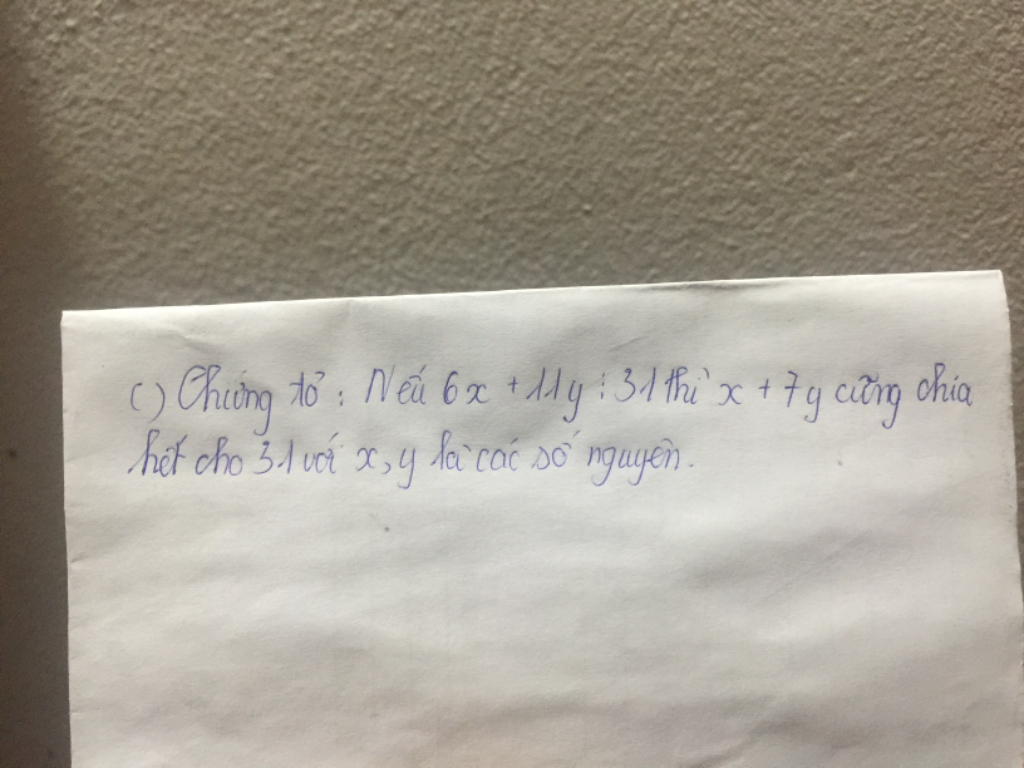 c) Chứng tỏ : Nếu 6x + 11y ⋮ 31 thì x + 7y cũng chia
hết cho 31 với x, y là các số nguyên.